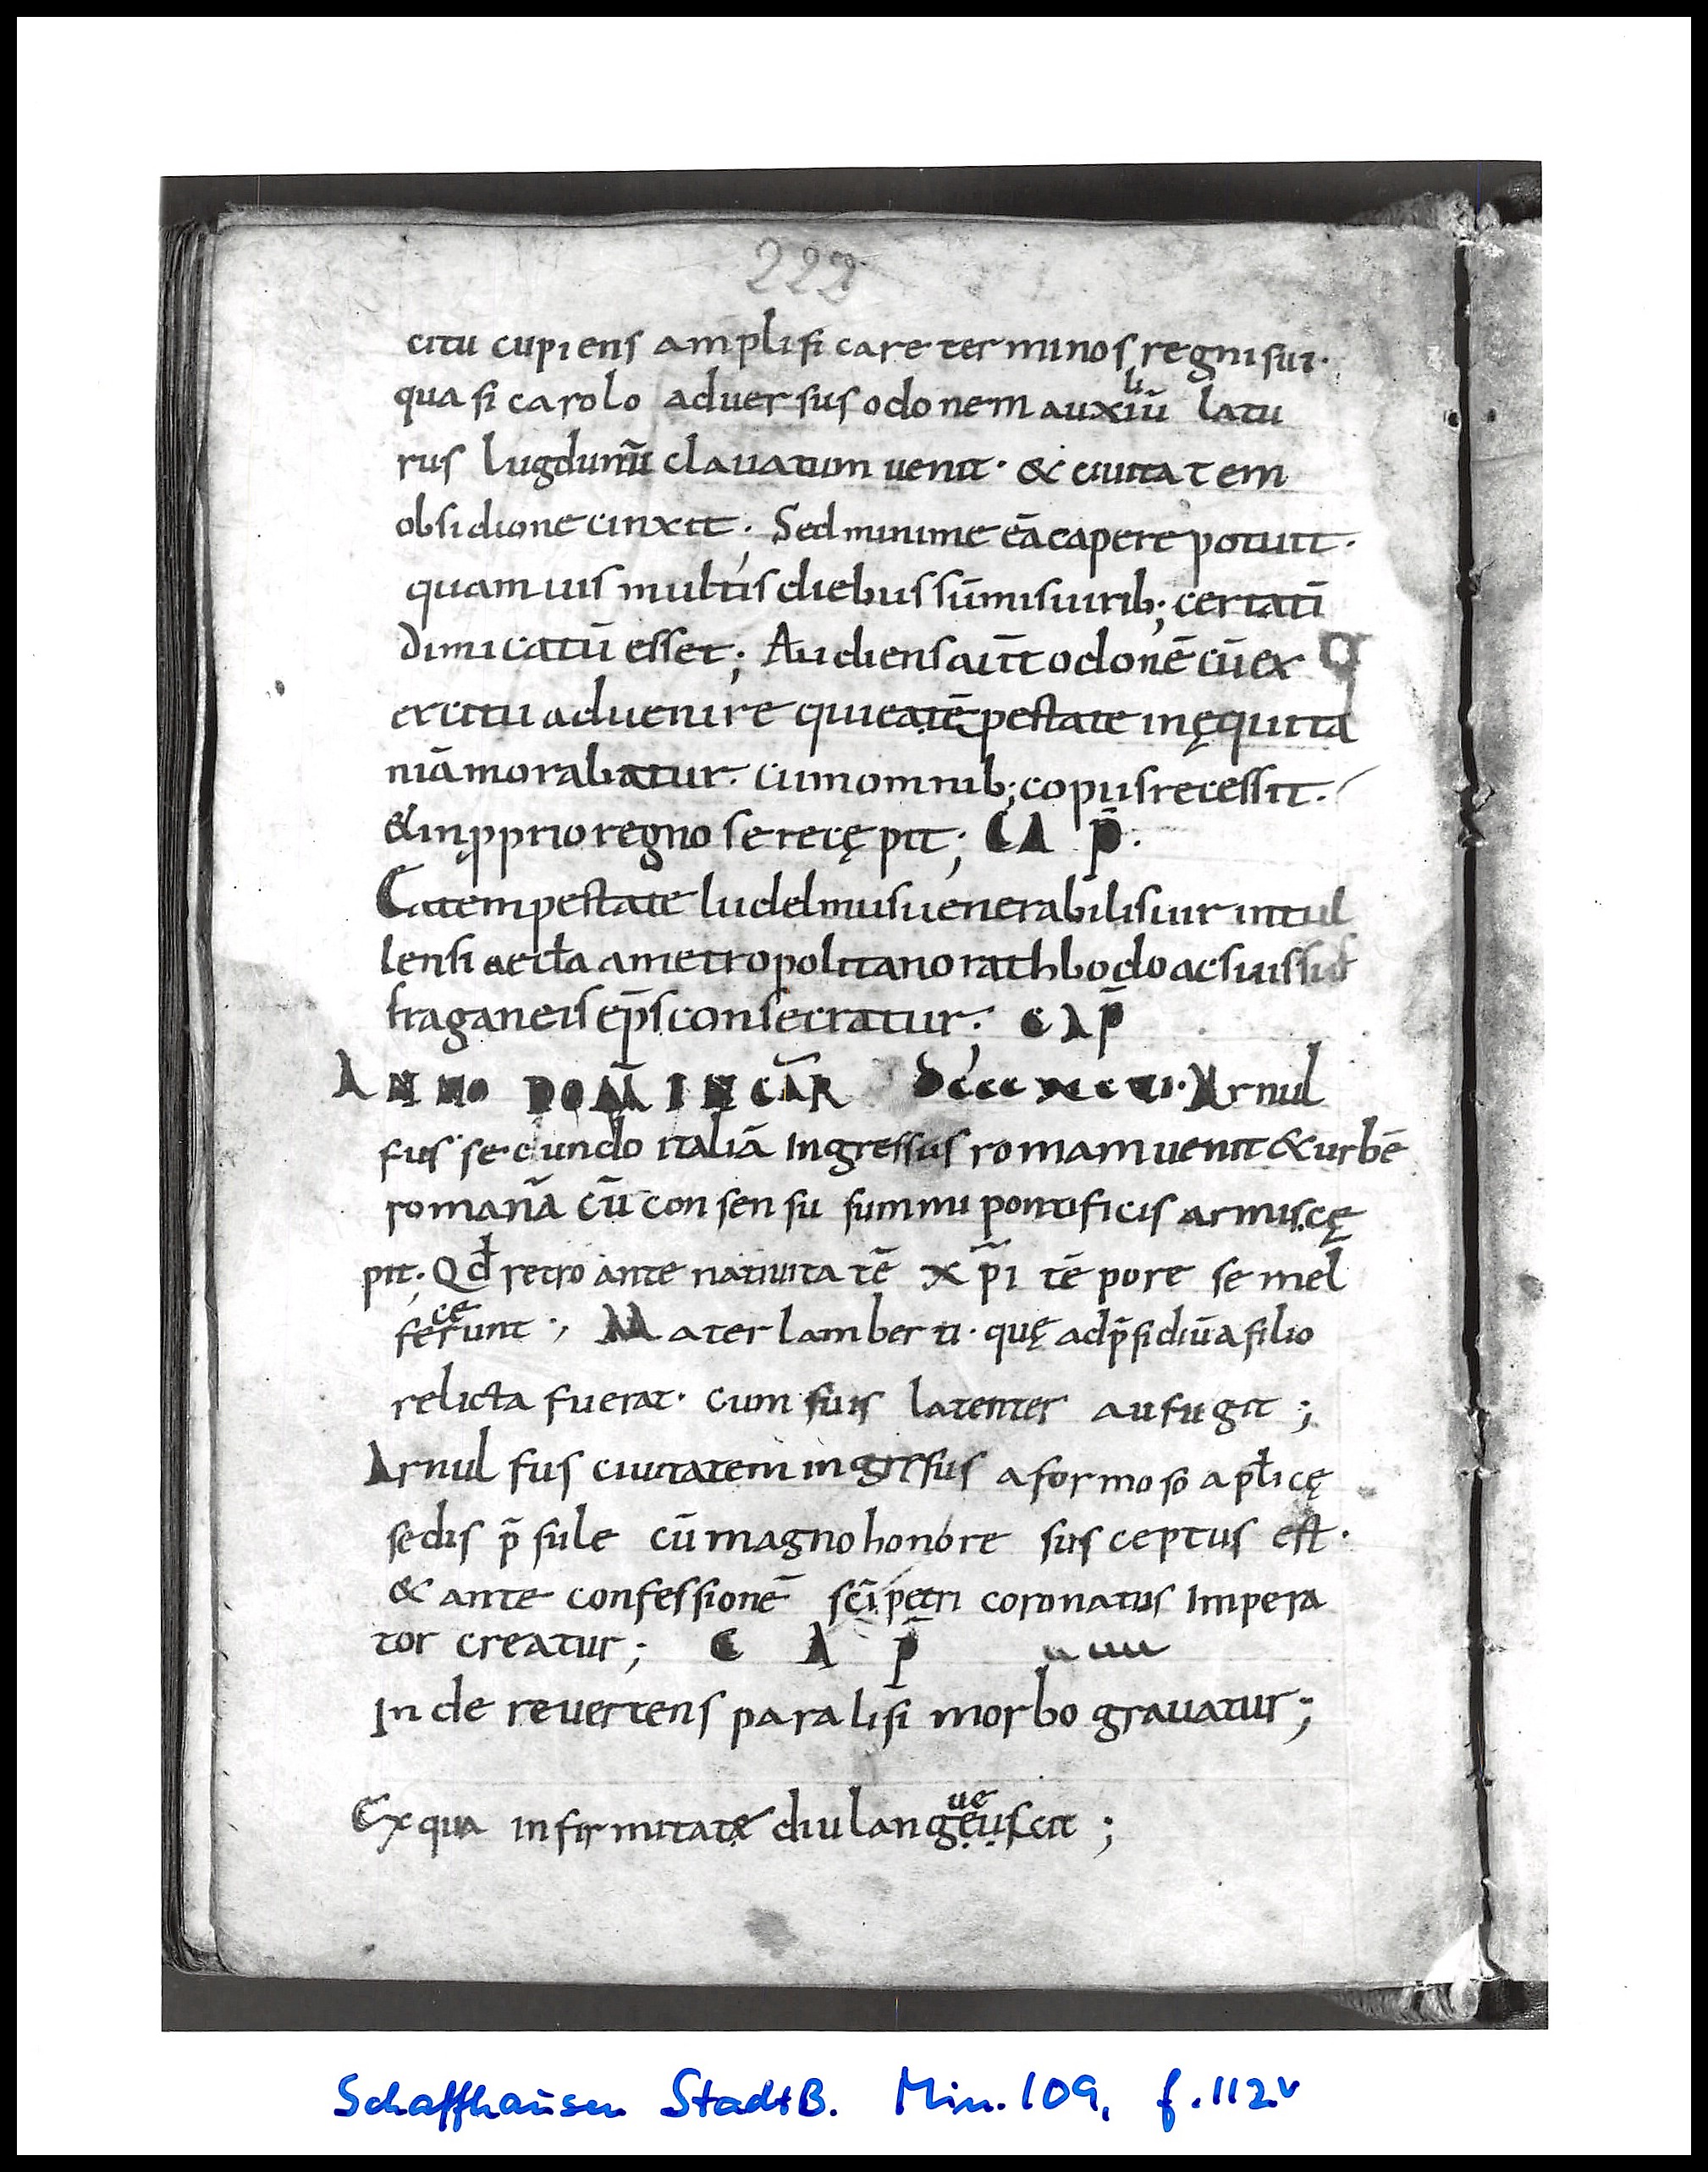 222
citu cupiens amplificare terminos regni sui·
quasi carolo aduersus odonem auxiliū latu
rus lugdunū clauatum uenit· & ciuitatem
obsidione cinxit· Sed minime eā capere potuit·
quamuis multis diebus sūmis uirib; certatī
dimicatū esset; Audiens aūt odonē cū ex
ercitu aduenire qui ea tēpestate in ęquita
niā morabatur· cum omnib; copiis recessit·
& in ꝓprio regno se recępit; CAP̄·
Ea tempestate ludelmus uenerabilis uir in tul
lensi aecł̄a a metropolitano rathbodo ac suis suf
fraganeis ep̄s consecratur; CAP̄
ANNO DOM̄ INCAR̄ DCCCXCVI· Arnul
fus secundo italiā Ingressus romam uenit & urbē
romanā cū consensu summi pontificis armis cę
pit; Qd̄ retro ante natiuitatē xp̄i tēpore semel
fecerunt; Mater lamberti· quę ad p̄sidiū a filio
relicta fuerat· cum suis latenter aufugit;
Arnulfus ciuitatem ingresus a formoso apl̄icę
sedis p̄sule cū magno honore susceptus est·
& ante confessionē sc̄i petri coronatus Impera
tor creatur; CAP̄
Inde reuertens paralisi morbo grauatur;
Ex qua infirmitatę diu langueuscit;
Schaffhausen StadtB. Min. 109, f. 112v